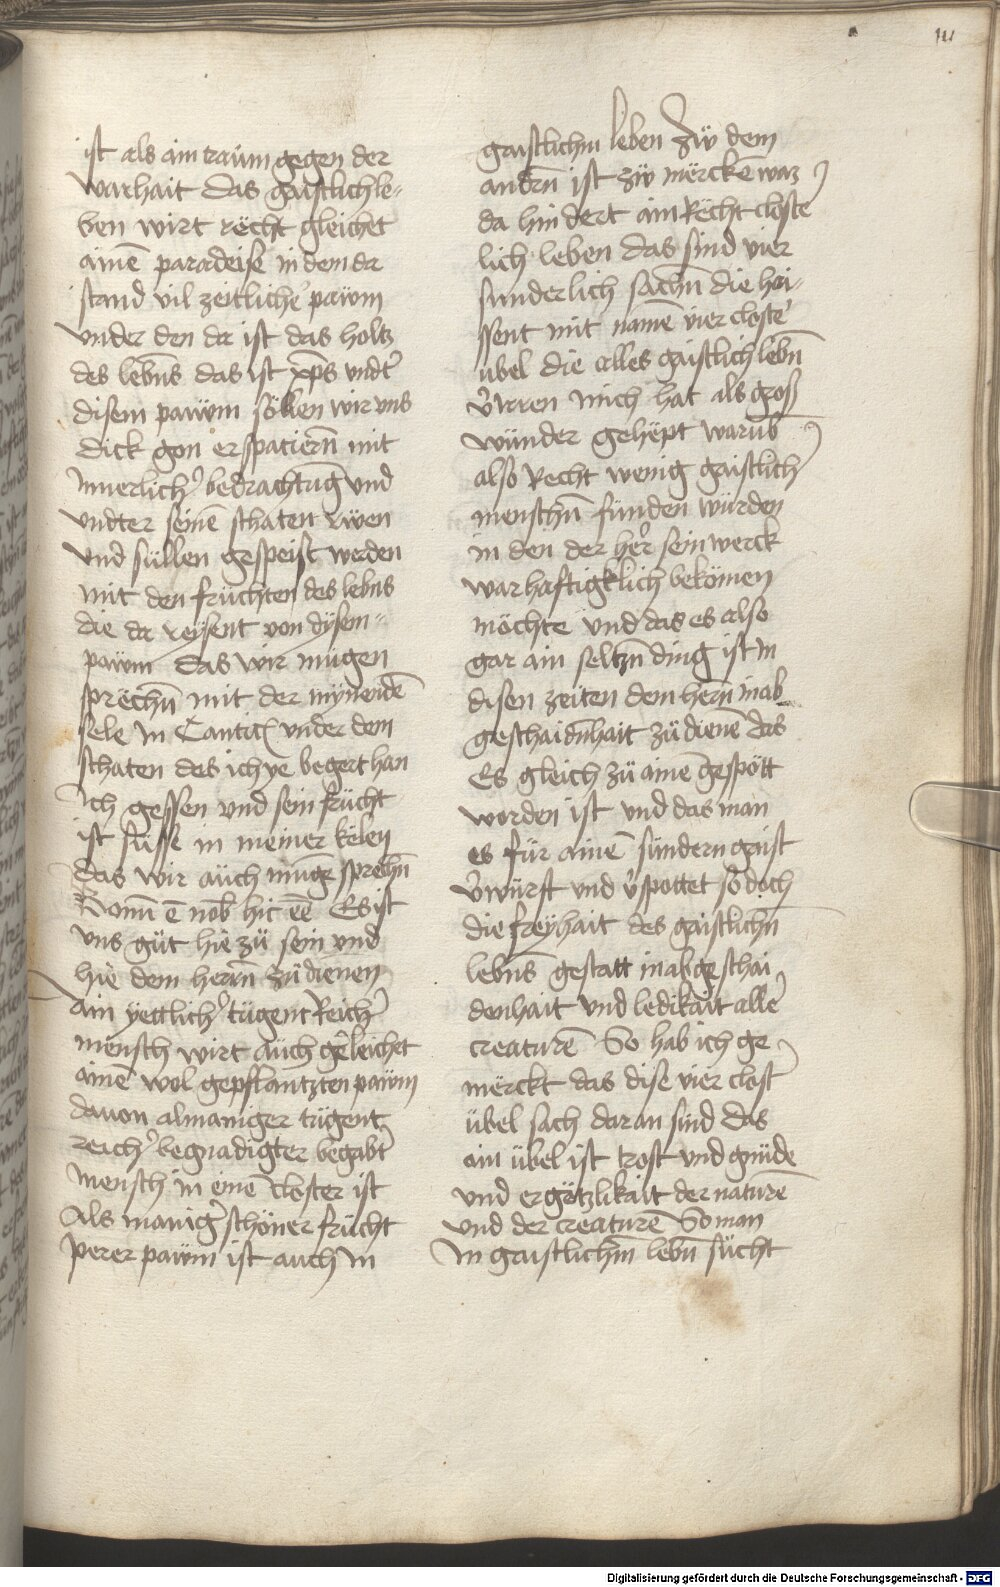 ist als ain traüm gegen der
warhait das gaistlich le-
ben wirt rëcht gleichet
ainē paradeise in dem da
stand vil zeitliche' paẅm
vnder den da ist das holtz
des lebn̄s das ist xp̄s vndt'
disem paẅm söllen wir vns
dick gon erspatiern̄ mit
Innerlich' bedrachtūg vnd
vndter seinē schaten rẅen
vnd süllen gespeist werden
mit den früchten des lebn̄s
die da reÿsent von dÿsem
paẅm das wir mügen
sprëchn̄ mit der mÿnendē
sele in Cantic) vnder dem
schaten des ich ye begert han
Ich gessen vnd sein frücht
ist süsse in meiner këlen
das wir aüch müge sprechn̄
Bonū ē nob hic eē Es ist
vns güt hie zü sein vnd
hie dem herrn̄ zü dienen
Ain yettlich' tügent Reich'
mensch wirt aüch geleichet
ainē wol gepflantzten paẅm
dauon almaniger tügent
reich' begnadigter begabt'
mensch in einē closter ist
Als manig' schöner frücht
perer paẅm ist auch in
gaistlichm leben Zẅ dem
andrn̄ ist zẅ mërckē waz
da hindert ain Rëcht closte'
lich leben das sind vier
sunderlich sachn̄ die hai-
ssent mit namē vier closte'
übel die alles gaistlich lebn̄
v'irren mich hat als groß
wünder gehëpt warūb
also Recht wenig gaistlich'
menschn̄ fünden würden
in den der her' sein werck
warhaftigklich bekömen
möchte vnd das es also
gar ain seltzn̄ ding ist in
disen zeiten dem herrn̄ in ab
geschaidn̄hait zü dienē das
Es gleich zü ainē gespött
worden ist vnd das man
es für ainē sündern gaist
v'würft vnd v'spottet so doch
die freÿhait des gaistlichn̄
lebn̄s gestatt in abgeschai
denhait vnd ledikait alle'
creaturē So hab ich ge
mërckt das dise vier clost'
übel sach daran sind das
ain übel ist trost vnd gnüde
vnd ergötzlikait der naturē
vnd der creaturē So man
in gaistlichm̄ lebn̄ sücht
Digitalisierung gefördert durch die Deutsche Forschungsgemeinschaft - DFG